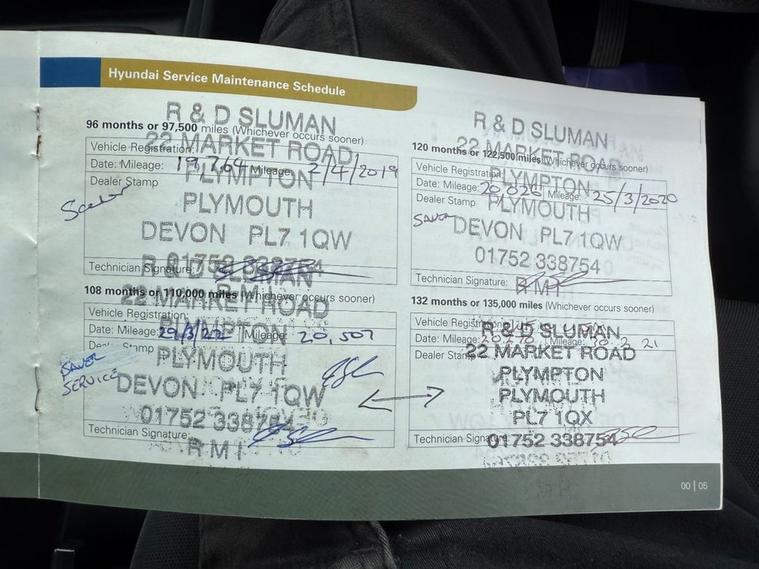 Hyundai Service Maintenance Schedule
R & D SLUMAN
96 months or 97,500 miles (Whichever occurs sooner)
22 MARKET ROAD
Vehicle Registration
PLYMPTON
Date: Mileage: 19,764 Mileage: 2/4/2019
Dealer Stamp
PLYMOUTH
DEVON PL7 1QW
01752 338754
Technician Signature:
R & D SLUMAN
22 MARKET ROAD
120 months or 122,500 miles (Whichever occurs sooner)
Vehicle Registration
PLYMPTON
Date: Mileage: 20,020 Mileage: 25/3/2020
Dealer Stamp
PLYMOUTH
SAVER
DEVON PL7 1QW
01752 338754
Technician Signature:
RMI
SLUMAN
108 months or 110,000 miles (Whichever occurs sooner)
22 MARKET ROAD
Vehicle Registration
PLYMPTON
Date: Mileage: 29/3/22 Mileage: 20,507
Dealer Stamp
SAVER
SERVICE
PLYMOUTH
DEVON PL7 1QW
01752 338754
Technician Signature:
RMI
132 months or 135,000 miles (Whichever occurs sooner)
Vehicle Registration
R & D SLUMAN
Date: Mileage: Mileage: 21
Dealer Stamp
22 MARKET ROAD
PLYMPTON
PLYMOUTH
PL7 1QX
Technician Signature:
01752 338754
00 | 05